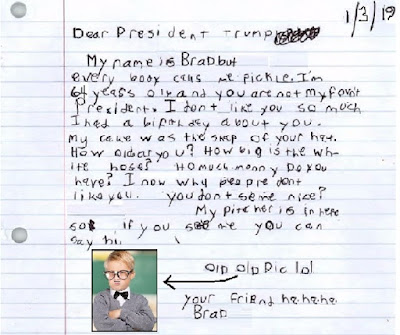 1/3/19
Dear President Trump
My name is Brad but
every body cals me pickle. I'm
64 years old and you are not my favrit
President. I dont like you so much
I had a birthday about you.
my cake was the shap of your hat.
How old ar you? How big is the wh-
ite hose? Ho much monny Do you
have? I now why peopre dont
like you. you don't seme nice?
My picther is in here
so if you see me you can
say hi.
old old Pic lol
your friend ha.ha.ha
Brad